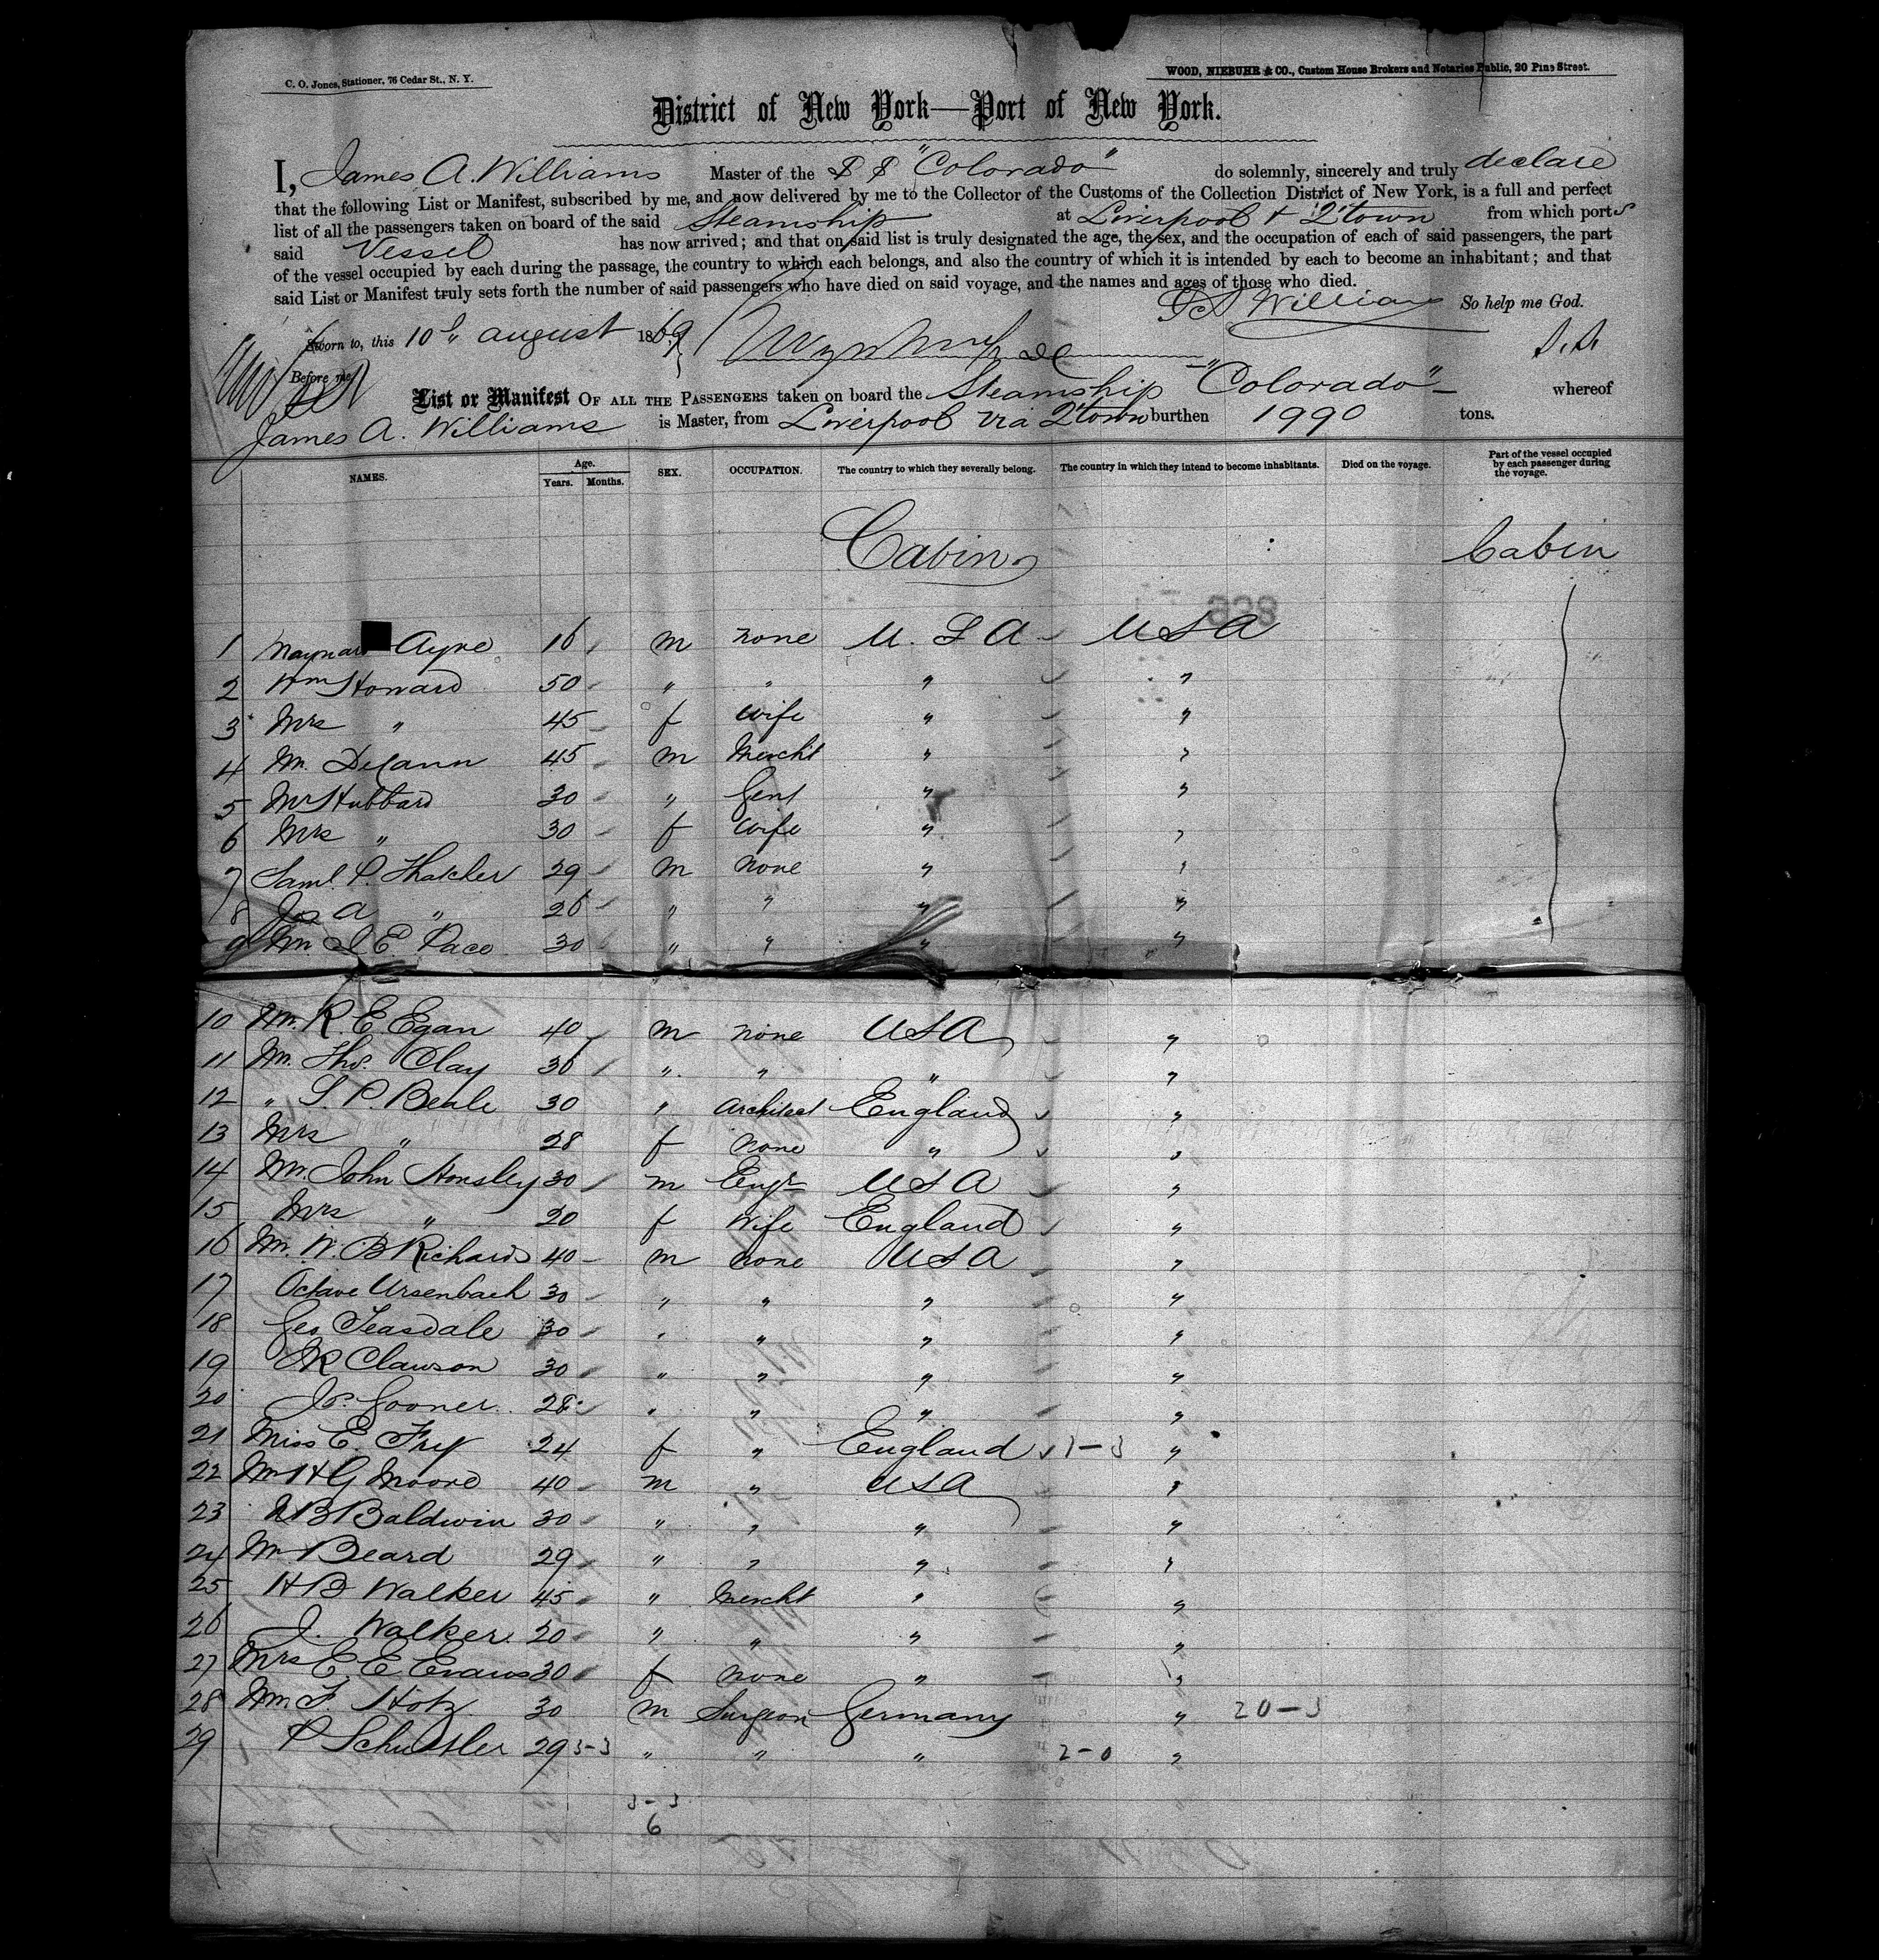 C. O. Jones, Stationer, 76 Cedar St., N. Y.
WOOD, NIEBUHR & CO., Custom House Brokers and Notaries Public, 20 Pine Street.
District of New York—Port of New York.
I, James A. Williams Master of the SS "Colorado" do solemnly, sincerely and truly declare
that the following List or Manifest, subscribed by me, and now delivered by me to the Collector of the Customs of the Collection District of New York, is a full and perfect
list of all the passengers taken on board of the said Steamship at Liverpool & Q'town from which ports
said Vessel has now arrived; and that on said list is truly designated the age, the sex, and the occupation of each of said passengers, the part
of the vessel occupied by each during the passage, the country to which each belongs, and also the country of which it is intended by each to become an inhabitant; and that
said List or Manifest truly sets forth the number of said passengers who have died on said voyage, and the names and ages of those who died.
Williams So help me God.
Sworn to, this 10 " august 1869
Before me
List or Manifest OF ALL THE PASSENGERS taken on board the Steamship "Colorado" whereof
James A. Williams is Master, from Liverpool via Q'town burthen 1990 tons.
NAMES. Age. Years. Months. SEX. OCCUPATION. The country to which they severally belong. The country in which they intend to become inhabitants. Died on the voyage. Part of the vessel occupied by each passenger during the voyage.
Cabin Cabin
1 Ayre 16 m none U.S.A USA
2 Wm Howard 50 " " " "
3 Mrs " 45 f wife " "
4 Mr. DeCann 45 m Mercht " "
5 Mr Hubbard 30 " Gent " "
6 Mrs " 30 f wife " "
7 Saml. P. Thatcher 29 m none " "
8 Jos A " 26 " " " "
9 Mr. Paco 30 " " " "
10 Mr. R. E. Egan 40 m none USA "
11 Mr. Thos. Clay 36 " " " "
12 " S. P. Beale 30 " Architect England "
13 Mrs " 28 f none " "
14 Mr. John Honsley 30 m Engr USA "
15 Mrs " 20 f Wife England "
16 Mr. W. B Richards 40 m none USA "
17 Octave Ursenbach 30 " " " "
18 Geo Teasdale 30 " " " "
19 Clawson 30 " " " "
20 Jos. Gooner 28 " " " "
21 Miss E. Fry 24 f " England 1-3 "
22 Mr H G Moore 40 m " USA "
23 Baldwin 30 " " " "
24 Mr Beard 29 " " " "
25 H B Walker 45 " Mercht " "
26 J. Walker 20 " " " "
27 Mrs E. E. Evans 30 f none " "
28 Mr. F. Hotz 30 m Surgeon Germany " 20-3
29 P Schussler 29 3-3 " " " 2-0 "
3-3
6